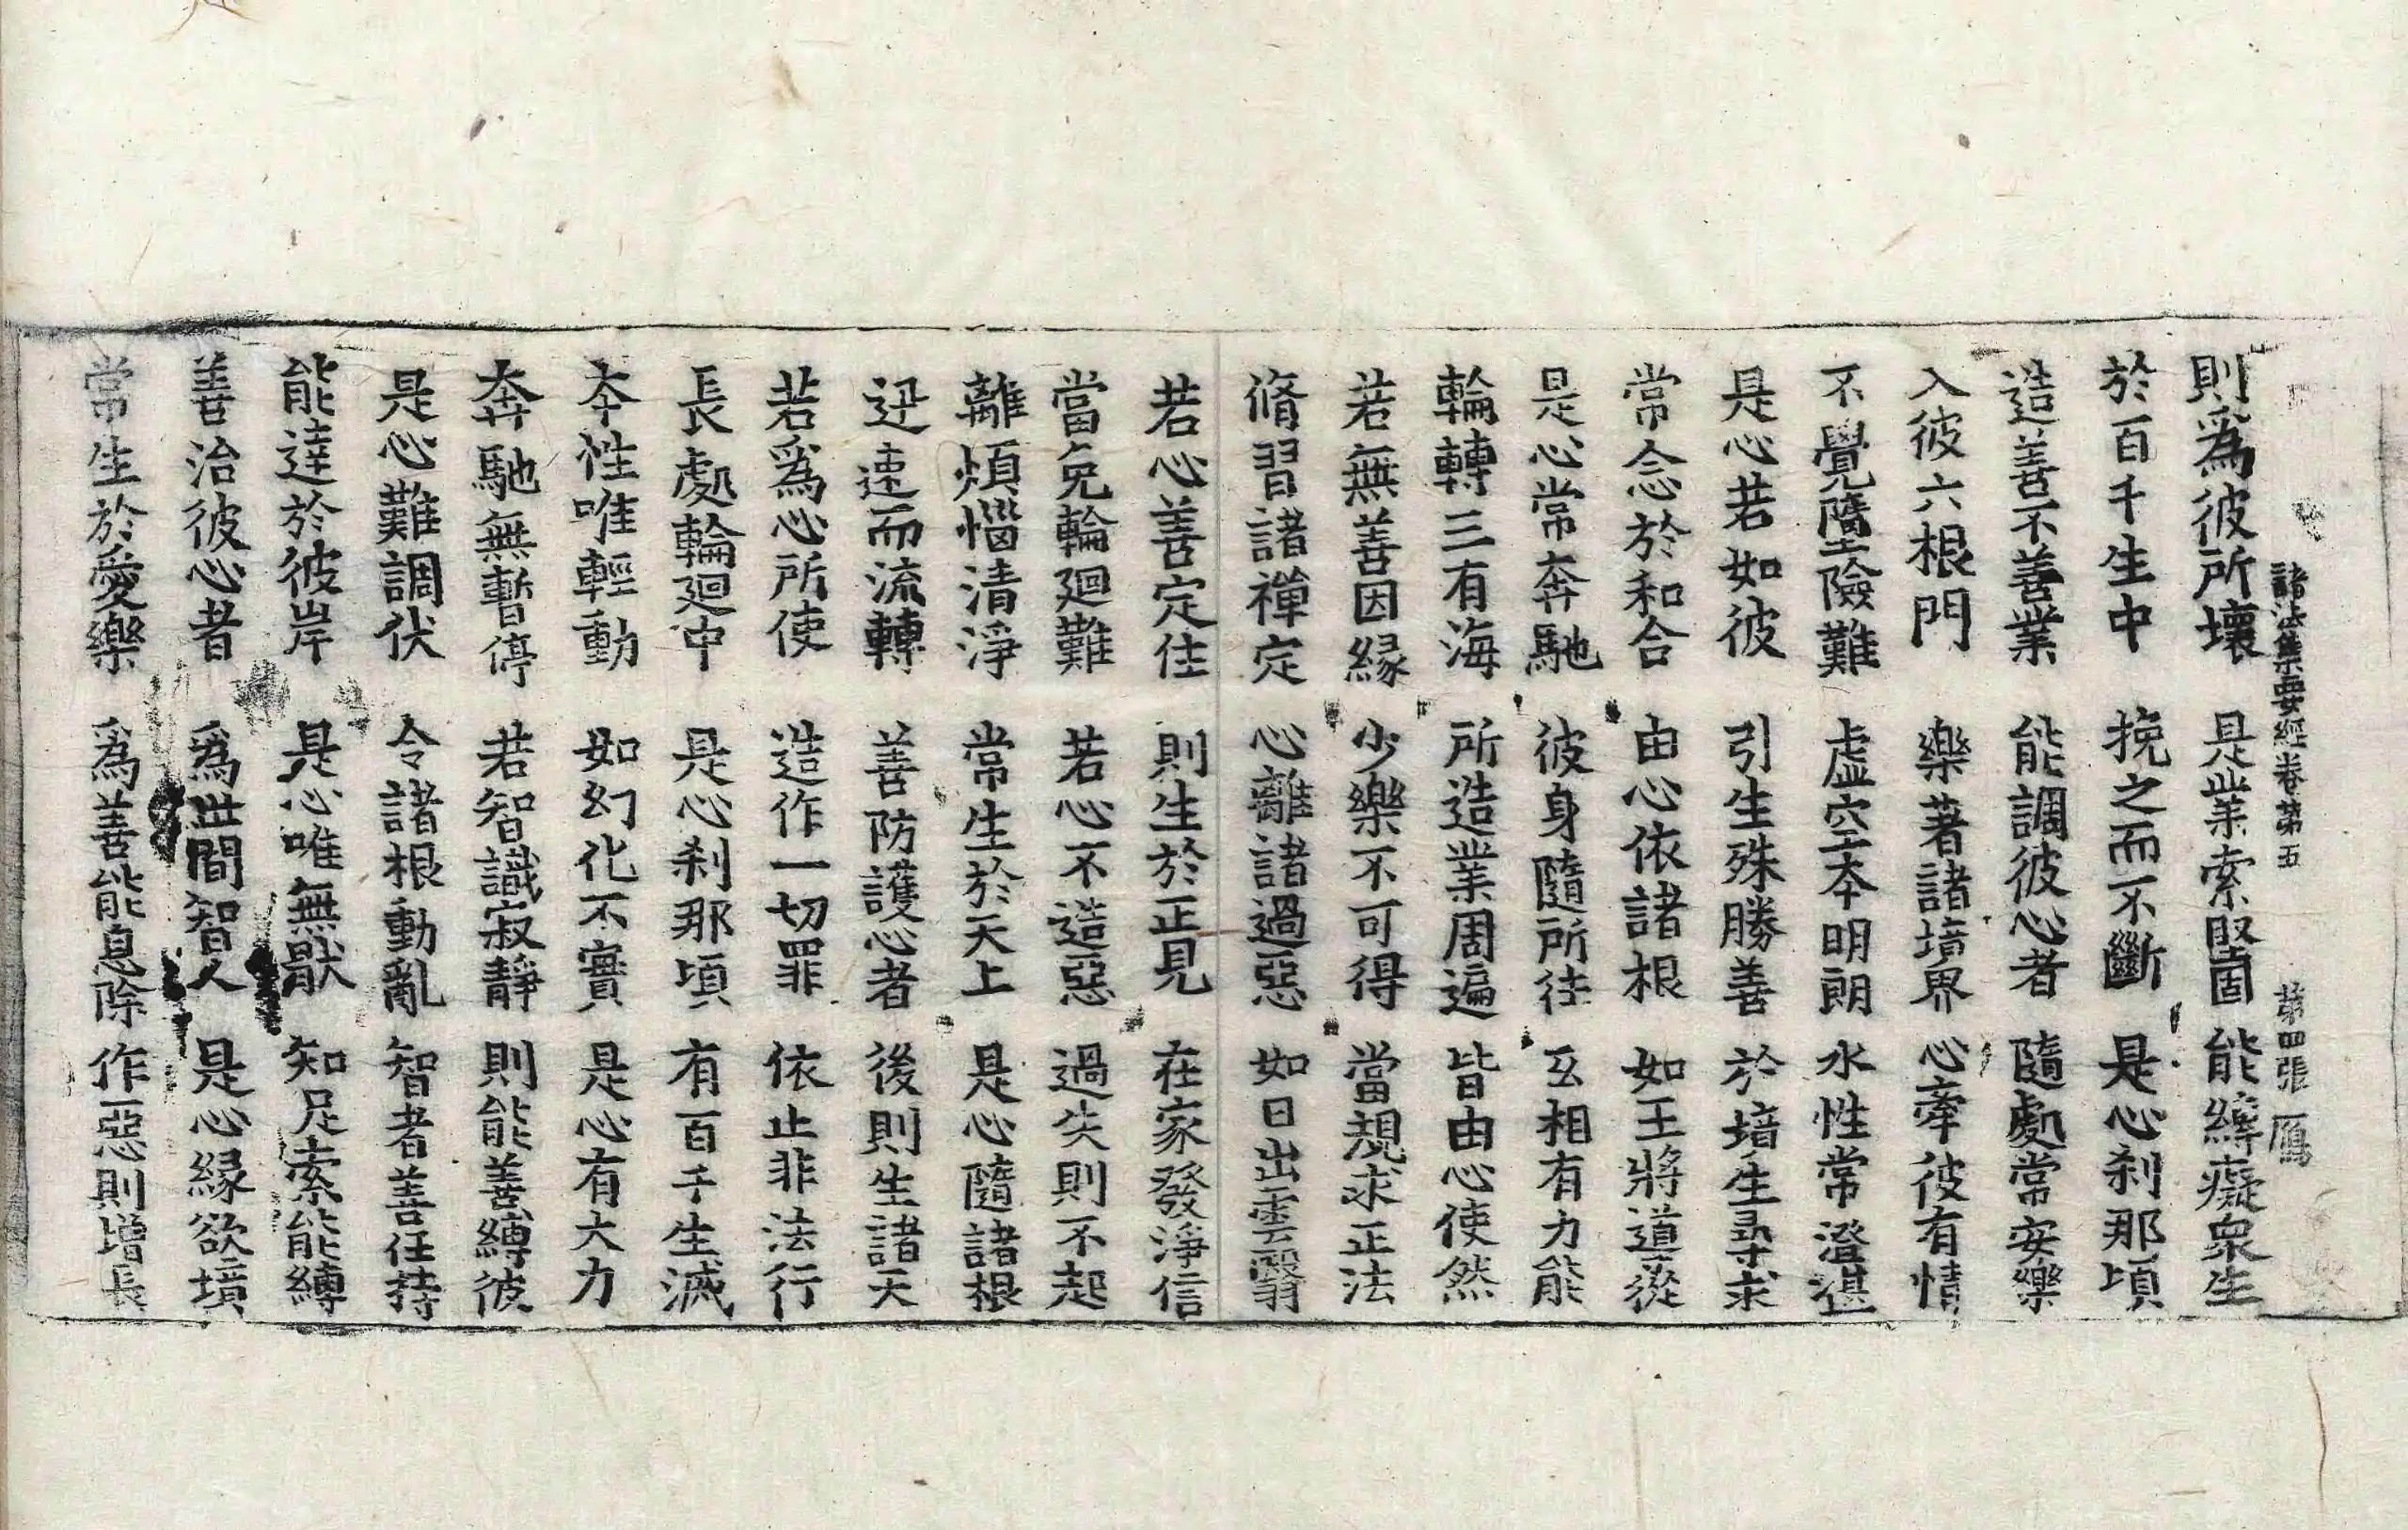 諸法集要經卷第五　第四張　鴈
則爲彼所壞　是業索堅固　能縛癡衆生
於百千生中　挽之而不斷　是心刹那頃
造善不善業　能調彼心者　隨處常安樂
入彼六根門　樂著諸境界　心牽彼有情
不覺墮險難　虛空本明朗　水性常澄湛
是心若如彼　引生殊勝善　於境生尋求
常念於和合　由心依諸根　如王將導從
是心常奔馳　彼身隨所往　互相有力能
輪轉三有海　所造業周遍　皆由心使然
若無善因緣　少樂不可得　當規求正法
脩習諸禪定　心離諸過惡　如日出雲翳
若心善定住　則生於正見　在家發淨信
當免輪迴難　若心不造惡　過失則不起
離煩惱清淨　常生於天上　是心隨諸根
迅速而流轉　善防護心者　後則生諸天
若爲心所使　造作一切罪　依止非法行
長處輪迴中　是心刹那頃　有百千生滅
本性唯輕動　如幻化不實　是心有大力
奔馳無暫停　若智識寂靜　則能善縛彼
是心難調伏　令諸根動亂　智者善任持
能達於彼岸　是心唯無猒　知足索能縛
善治彼心者　爲世間智人　是心緣欲境
常生於愛樂　爲善能息除　作惡則增長